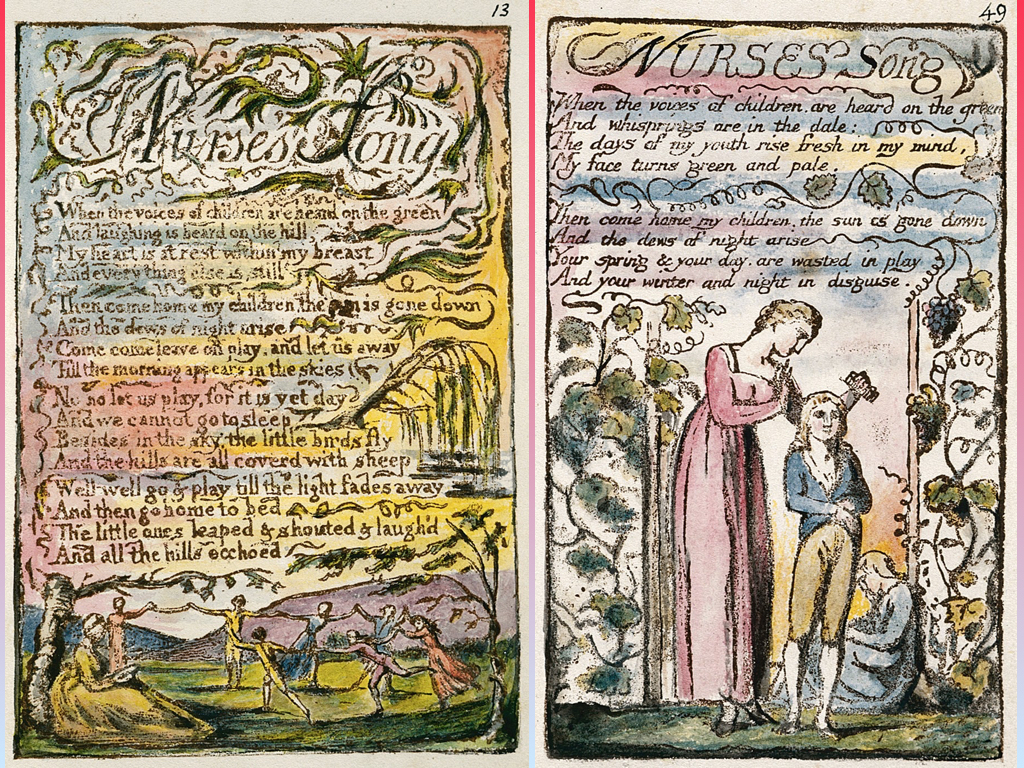 13
Nurse's Song
When the voices of children are heard on the green
And laughing is heard on the hill
My heart is at rest within my breast
And every thing else is still
Then come home my children the sun is gone down
And the dews of night arise
Come come leave off play, and let us away
Till the morning appears in the skies
No no let us play, for it is yet day
And we cannot go to sleep
Besides in the sky, the little birds fly
And the hills are all coverd with sheep
Well well go & play till the light fades away
And then go home to bed
The little ones leaped & shouted & laugh'd
And all the hills ecchoed
49
NURSES Song
When the voices of children, are heard on the green
And whisprings are in the dale:
The days of my youth rise fresh in my mind,
My face turns green and pale.
Then come home my children, the sun is gone down
And the dews of night arise
Your spring & your day, are wasted in play
And your winter and night in disguise.